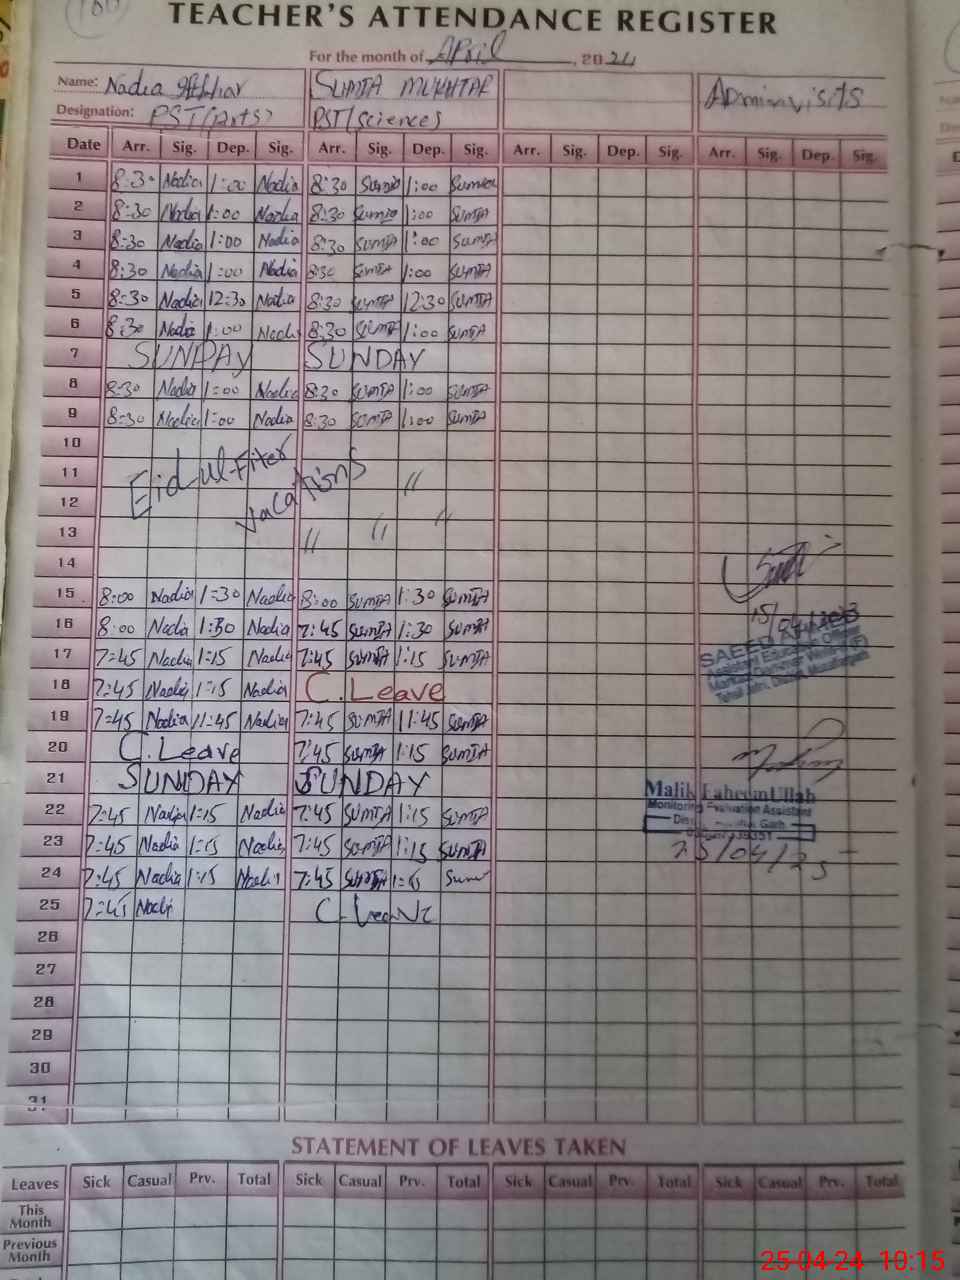 TEACHER'S ATTENDANCE REGISTER
For the month of April, 2024
Name: Nadia SUMIA MUKHTAR Admin visits
Designation: PST(Arts) PST(Sciences)
Date Arr. Sig. Dep. Sig. Arr. Sig. Dep. Sig. Arr. Sig. Dep. Sig. Arr. Sig. Dep. Sig.
1 8:30 Nadia 1:00 Nadia 8:30 Sumia 1:00 Sumia
2 8:30 Nadia 1:00 Nadia 8:30 Sumia 1:00 SUMIA
3 8:30 Nadia 1:00 Nadia 8:30 SUMIA 1:00 SUMIA
4 8:30 Nadia 1:00 Nadia 8:30 SUMIA 1:00 SUMIA
5 8:30 Nadia 12:30 Nadia 8:30 SUMIA 12:30 SUMIA
6 8:30 Nadia 1:00 Nadia 8:30 SUMIA 1:00 SUMIA
7 SUNDAY SUNDAY
8 8:30 Nadia 1:00 Nadia 8:30 SUMIA 1:00 SUMIA
9 8:30 Nadia 1:00 Nadia 8:30 SUMIA 1:00 SUMIA
10
11 Eid-ul-Fiter vacations "
12
13 " " "
14
15 8:00 Nadia 1:30 Nadia 8:00 SUMIA 1:30 SUMIA
16 8:00 Nadia 1:30 Nadia 7:45 SUMIA 1:30 SUMIA
17 7:45 Nadia 1:15 Nadia 7:45 SUMIA 1:15 SUMIA SAEED AHMED
18 7:45 Nadia 1:15 Nadia C.Leave
19 7:45 Nadia 11:45 Nadia 7:45 SUMIA 11:45 SUMIA
20 C.Leave 7:45 SUMIA 1:15 SUMIA
21 SUNDAY SUNDAY Malik FaheemUllah
22 7:45 Nadia 1:15 Nadia 7:45 SUMIA 1:15 SUMIA Monitoring Evaluation Assistant
23 7:45 Nadia 1:15 Nadia 7:45 SUMIA 1:15 SUMIA
24 7:45 Nadia 1:15 Nadia 7:45 SUMIA 1:15
25 7:45 Nadi C.Leave
26
27
28
29
30
31
STATEMENT OF LEAVES TAKEN
Leaves Sick Casual Prv. Total Sick Casual Prv. Total Sick Casual Prv. Total Sick Casual Prv. Total
This Month
Previous Month
25-04-24 10:15